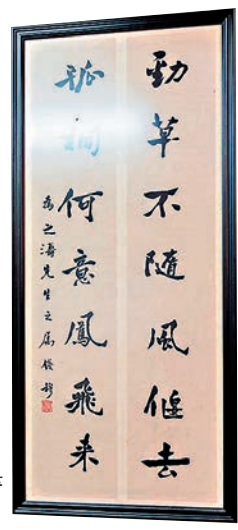 勁草不隨風偃去
孤桐何意鳳飛来
為之濤先生之屬 錢穆